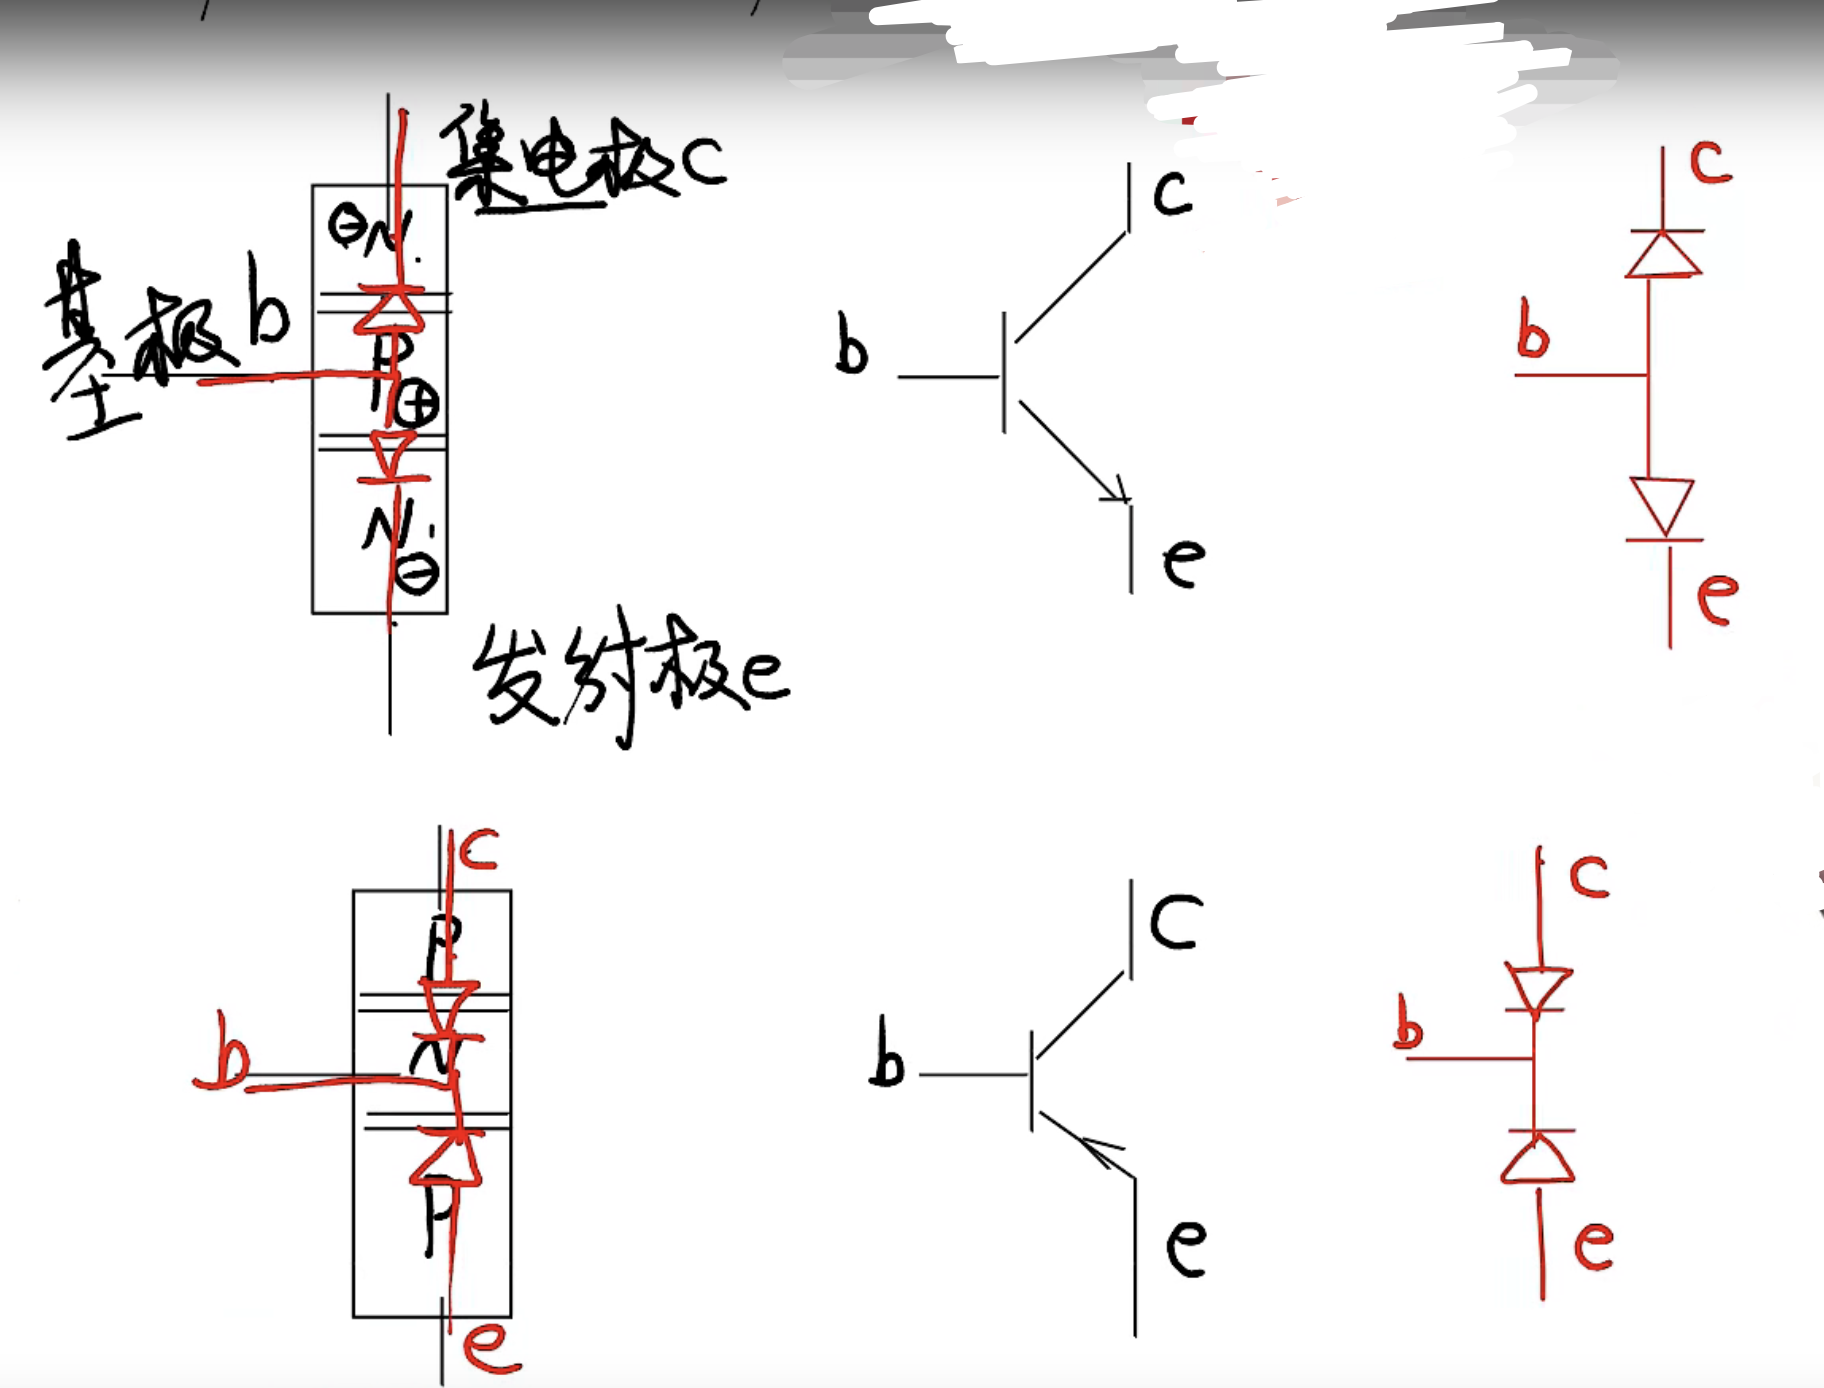 集电极c
ΘN
基极b
P
⊕
N
Θ
发射极e
c
b
e
c
b
e
c
P
b
N
P
e
C
b
e
c
b
e